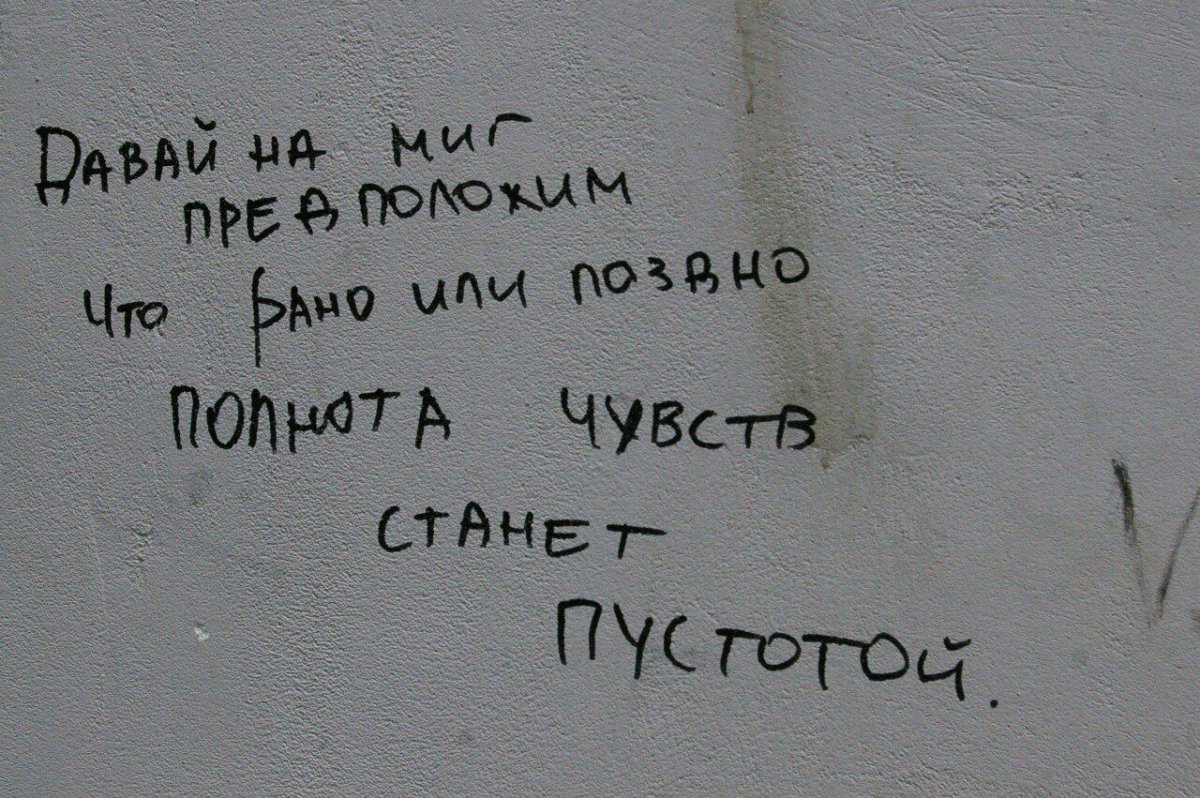 Давай на миг
предположим
что рано или поздно
полнота чувств
станет
пустотой.